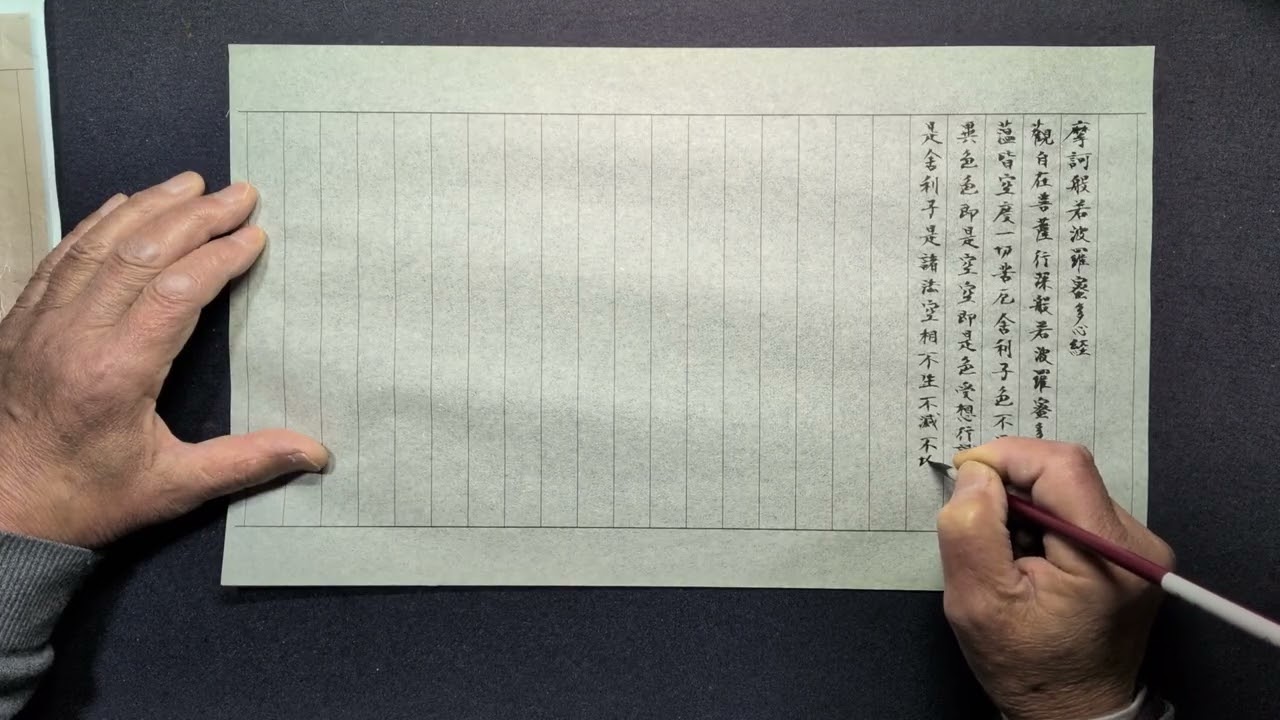 摩訶般若波羅蜜多心経
観自在菩薩行深般若波羅蜜多
薀皆空度一切苦厄舍利子色不
異色色即是空空即是色受想行
是舍利子是諸法空相不生不滅不